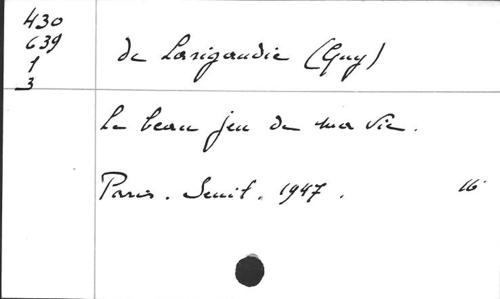 430
639
1
3
de Larigaudie (Guy)
Le beau jeu de ma vie.
Paris. Seuil. 1947. 16°